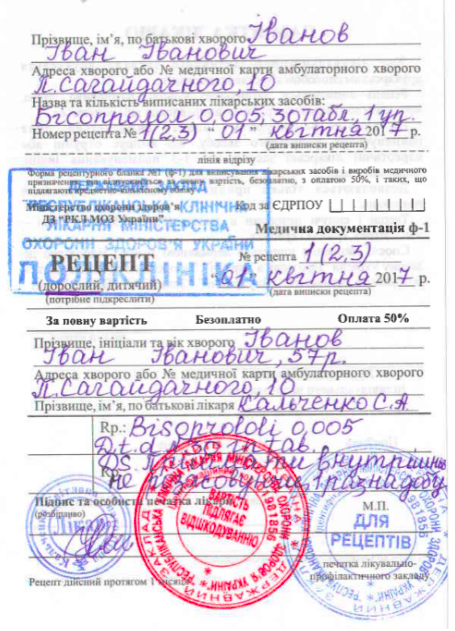 Прізвище, ім'я, по батькові хворого Іванов
Іван Іванович
Адреса хворого або № медичної карти амбулаторного хворого
П.Сагайдачного, 10
Назва та кількість виписаних лікарських засобів:
Бісопролол 0,005, 30табл, 1уп.
Номер рецепта № 1(2,3) "01" квітня 2017 р.
(дата виписки рецепта)
лінія відрізу
Форма рецептурного бланка №1 (ф-1) для виписування лікарських засобів і виробів медичного
Міністерство охорони здоров'я
Код за ЄДРПОУ
ДЗ "РКЛ МОЗ України"
Медична документація ф-1
ДЕРЖАВНИЙ ЗАКЛАД
РЕСПУБЛІКАНСЬКА КЛІНІЧНА
ЛІКАРНЯ МІНІСТЕРСТВА
ОХОРОНИ ЗДОРОВ'Я УКРАЇНИ
ПОЛІКЛІНІКА
РЕЦЕПТ
№ рецепта 1(2,3)
(дорослий, дитячий)
"01" квітня 2017 р.
(потрібне підкреслити)
(дата виписки рецепта)
За повну вартість Безоплатно Оплата 50%
Прізвище, ініціали та вік хворого Іванов
Іван Іванович, 57р.
Адреса хворого або № медичної карти амбулаторного хворого
П.Сагайдачного, 10
Прізвище, ім'я, по батькові лікаря Кальченко С.А
Rp.: Bisoprololi 0,005
D.t.d. in tab.
DS внутрішньо
1 раз на добу
Підпис та особиста печатка лікаря
(розбірливо)
ВАРТІСТЬ
ПІДЛЯГАЄ
ВІДШКОДУВАННЮ
М.П.
ДЛЯ
РЕЦЕПТІВ
печатка лікувально-
профілактичного закладу
Рецепт дійсний протягом 1 місяця